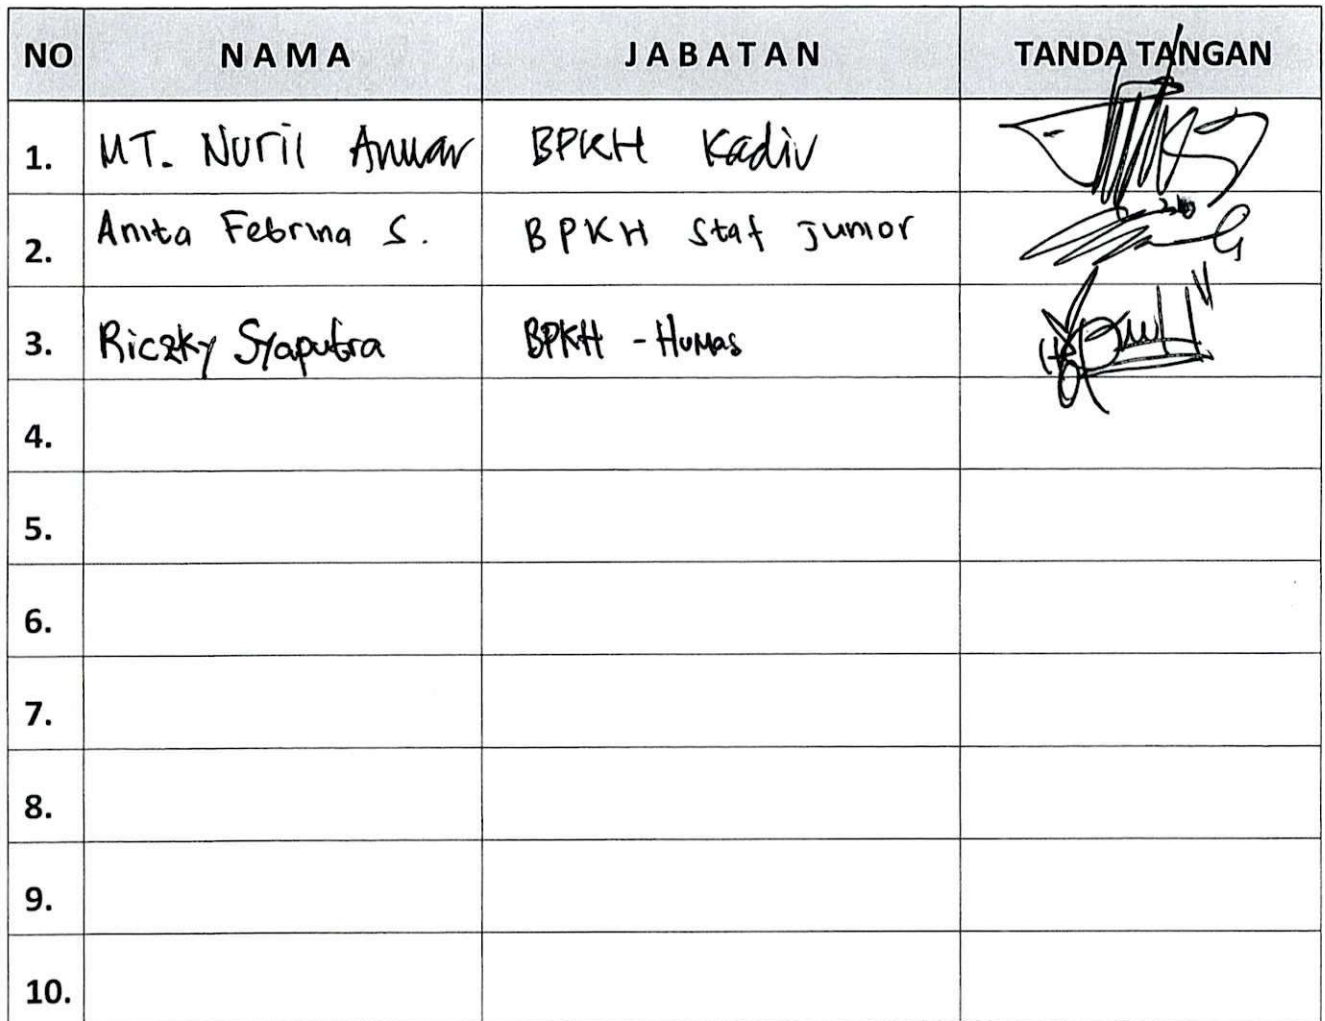 NO NAMA JABATAN TANDA TANGAN
1. MT. Nuril Anwar BPKH Kadiv
2. Anita Febrina S. BPKH Staf Junior
3. Riczky Syaputra BPKH - Humas
4.
5.
6.
7.
8.
9.
10.